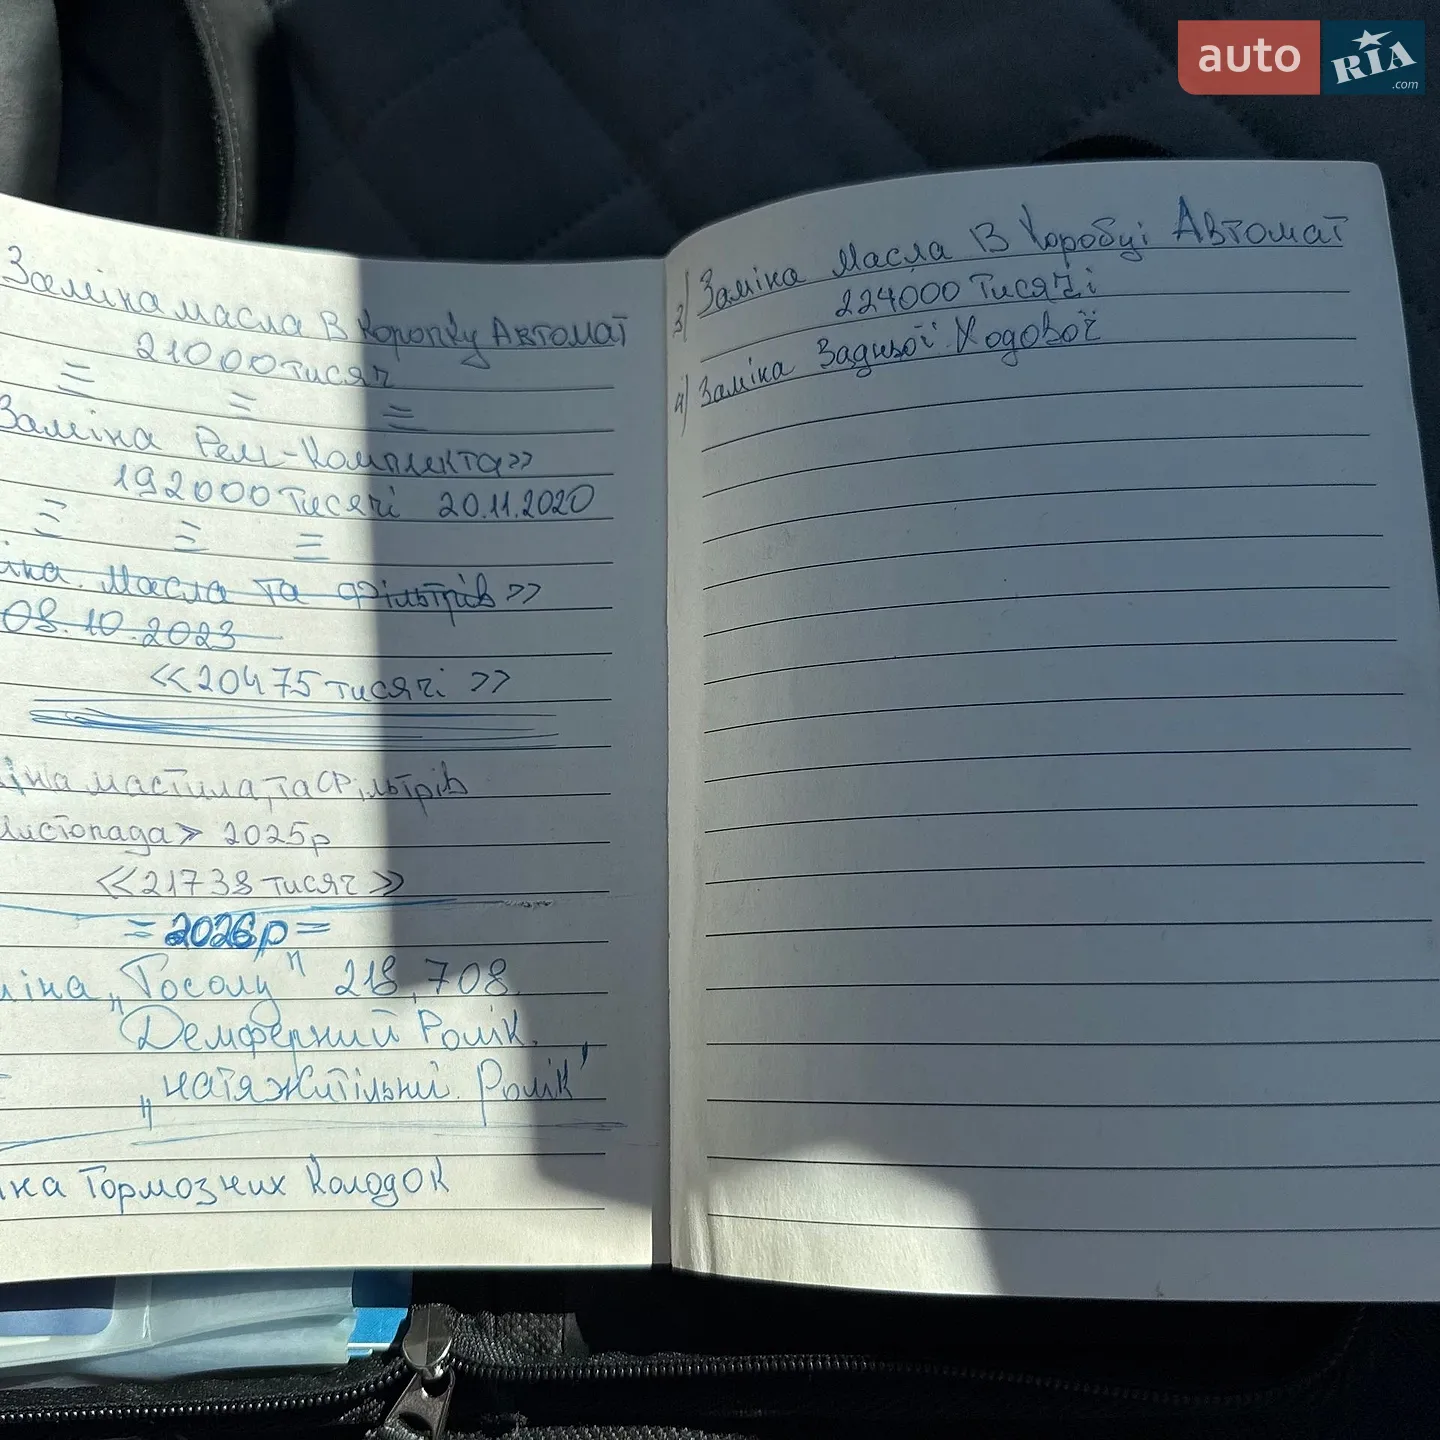 auto RIA.com
Заміна масла в коропку Автомат
21000 тисяч
Заміна Рем-комплекта»
192000 тисячі 20.11.2020
іна масла та фільтрів»
08.10.2023
«20475 тисячі»
іна мастила, та фільтрів
листопада» 2025р
«21738 тисяч»
=2026р=
міна „Тосолу" 218,708.
Демферний Ролік.
„натяжитільни. Ролік'
іна Тормозних Колодок
3) Заміна масла в Коробці Автомат
224000 тисячі
4) Заміна Задньої Ходової